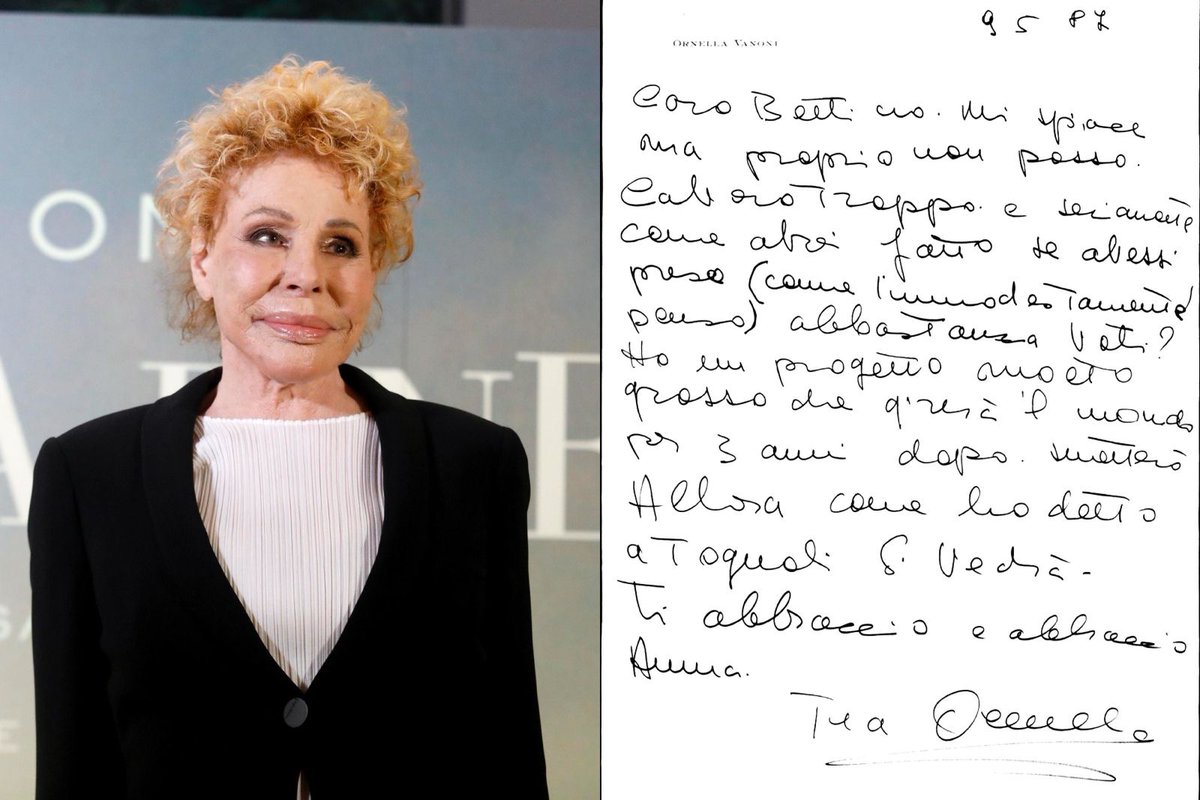 ORNELLA VANONI
9 5 87
Caro Bettino. Mi spiace
ma proprio non posso.
Lavoro Troppo. e seriamente
come avrei fatto se avessi
preso (come immodestamente
penso) abbastanza Voti?
Ho un progetto molto
grosso che girerà il mondo
per 3 anni dopo. smetterò
Allora come ho detto
a Tognoli Si Vedrà-
Ti abbraccio e abbraccio
Anna.
Tua Ornella
OM